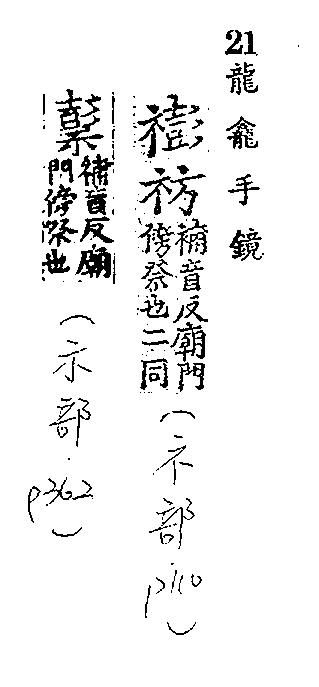 21龍龕手鏡
𥛱祊補音反廟門傍祭也二同(示部·p110)
補音反廟門傍祭也(示部·p362)